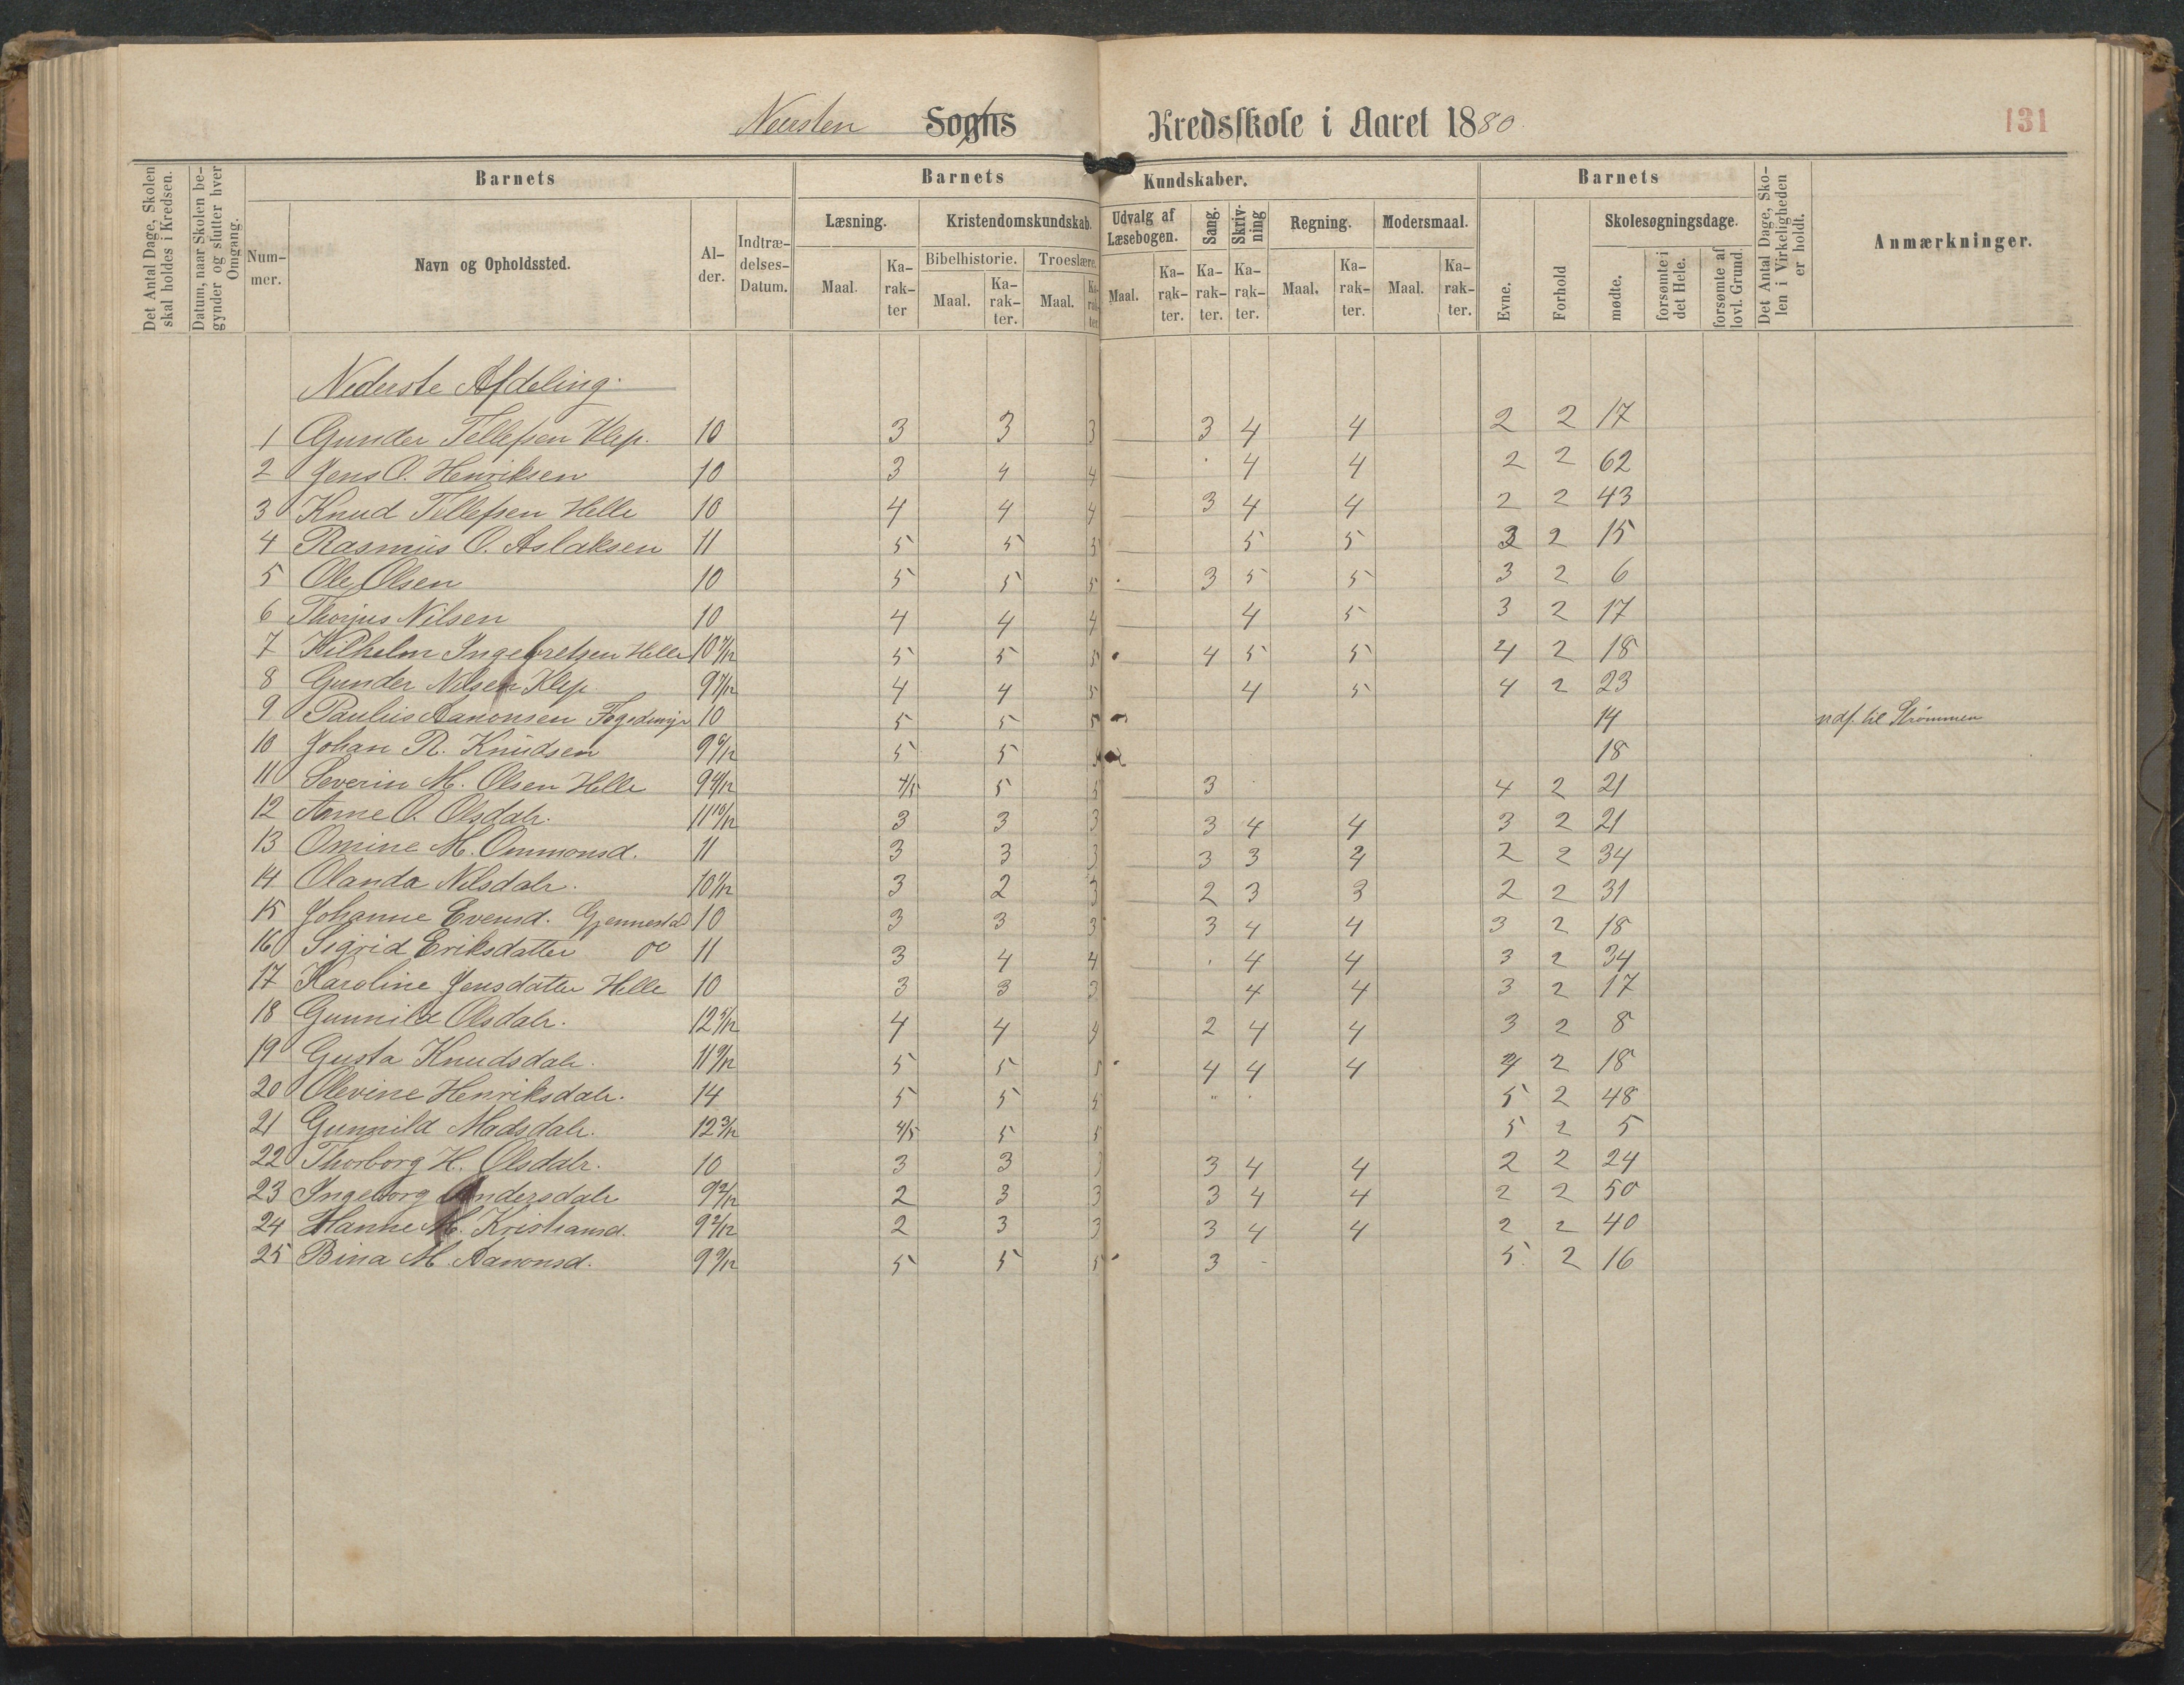 Neersten Sogns Kredsskole i Aaret 1880
131
Det Antal Dage, Skolen skal holdes i Kredsen.
Datum, naar Skolen begynder og slutter hver Omgang.
Barnets
Nummer.
Navn og Opholdssted.
Alder.
Indtrædelses-Datum.
Barnets Kundskaber.
Læsning.
Maal.
Karakter
Kristendomskundskab.
Bibelhistorie.
Maal.
Karakter.
Troeslære.
Maal.
Karakter.
Udvalg af Læsebogen.
Maal.
Karakter.
Sang.
Karakter.
Skrivning
Karakter.
Regning.
Maal.
Karakter.
Modersmaal.
Maal.
Karakter.
Barnets
Evne.
Forhold
Skolesøgningsdage.
mødte.
forsømte i det Hele.
forsømte af lovl. Grund
Det Antal Dage, Skolen i Virkeligheden er holdt.
Anmærkninger.
Nederste Afdeling.
1 Gunder Tellefsen Klep. 10 3 3 3 3 4 4 2 2 17
2 Jens O. Henriksen 10 3 4 4 4 4 2 2 62
3 Knud Tellefsen Helle 10 4 4 4 3 4 4 2 2 43
4 Rasmus O. Aslaksen 11 5 5 5 5 5 3 2 15
5 Ole Olsen 10 5 5 5 3 5 5 3 2 6
6 Thorjus Nilsen 10 4 4 4 4 5 3 2 17
7 Vilhelm Ingebretsen Helle 10 7/12 5 5 5 4 5 5 4 2 18
8 Gunder Nilsen Klep 9 7/12 4 4 5 4 5 4 2 23
9 Paulus Aanonsen Fogedmyr 10 5 5 5 14 ndf. til Strømmen
10 Johan R. Knudsen 9 6/12 5 5 18
11 Severin M. Olsen Helle 9 4/12 4/5 5 5 3 4 2 21
12 Anne O. Olsdatr. 11 10/12 3 3 3 3 4 4 3 2 21
13 Omine M. Ommonsd. 11 3 3 3 3 3 4 2 2 34
14 Olanda Nilsdatr. 10 1/12 3 2 3 2 3 3 2 2 31
15 Johanne Evensd. Gjennestad 10 3 3 3 3 4 4 3 2 18
16 Sigrid Eriksdatter do 11 3 4 4 4 4 3 2 34
17 Karoline Jensdatter Helle 10 3 3 3 4 4 3 2 17
18 Gunnild Olsdatr. 12 5/12 4 4 4 2 4 4 3 2 8
19 Gusta Knudsdatr. 11 9/12 5 5 5 4 4 4 4 2 18
20 Olevine Henriksdatr. 14 5 5 5 " 5 2 48
21 Gunnild Madsdatr. 12 3/12 4/5 5 5 5 2 5
22 Thorborg H. Olsdatr. 10 3 3 3 3 4 4 2 2 24
23 Ingeborg Andersdatr 9 2/12 2 3 3 3 4 4 2 2 50
24 Hanne M. Kristiansd. 9 2/12 2 3 3 3 4 4 2 2 40
25 Bina M. Aanonsd. 9 9/12 5 5 5 3 - 5 2 16